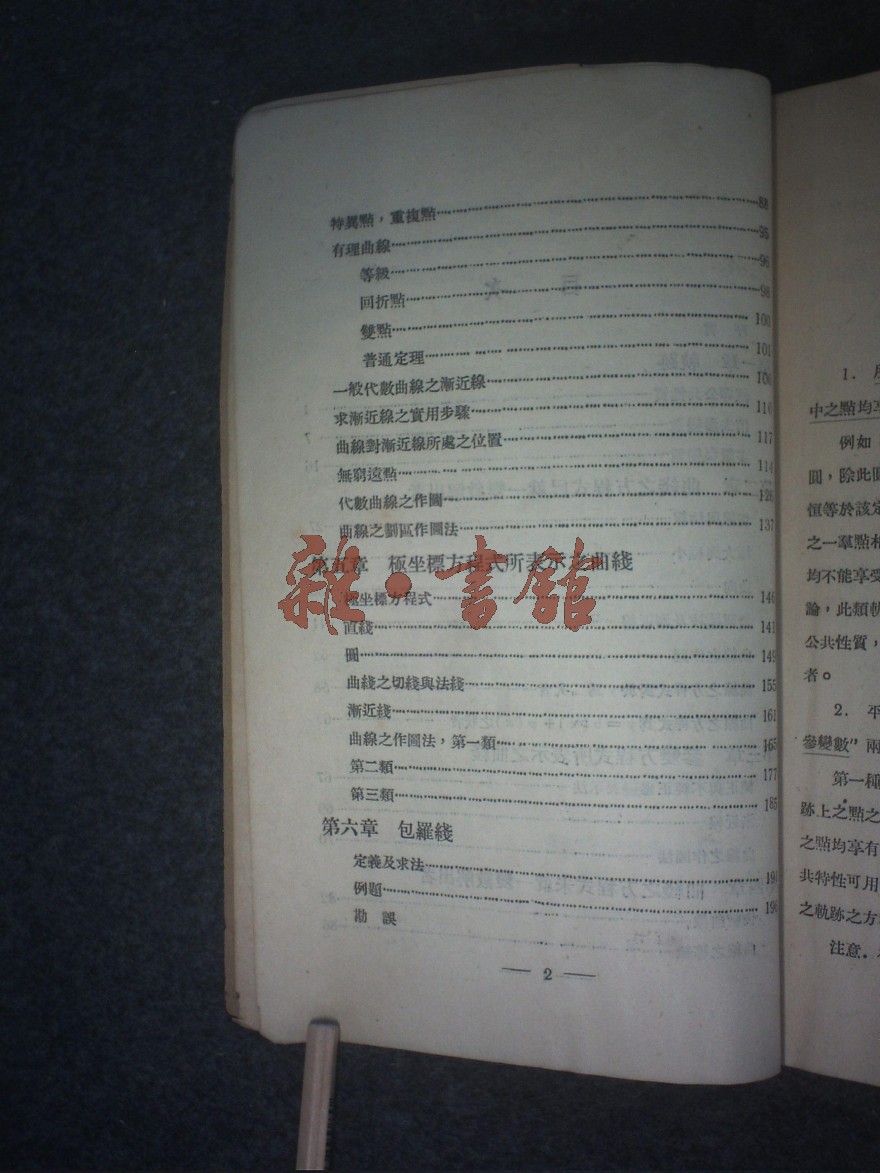 特異點，重複點……88
有理曲線……95
等級……96
回折點……98
雙點……100
普通定理……101
一般代數曲線之漸近線……106
求漸近線之實用步驟……114
曲線對漸近線所處之位置……117
無窮遠點……114
代數曲線之作圖……126
曲線之劃區作圖法……137
第五章 極坐標方程式所表示之曲綫
極坐標方程式……140
直綫……141
圓……149
曲綫之切綫與法綫……155
漸近綫……161
曲線之作圖法，第一類……165
第二類……177
第三類……185
第六章 包羅綫
定義及求法……191
例題……196
勘誤
— 2 —
雜·書館
1.
中之點均享
例如
圓，除此圓
恒等於該定
之一羣點相
均不能享受
論，此類軌
公共性質，
者。
2. 平
參變數"兩
第一種
跡上之點之
之點均享有
共特性可用
之軌跡之方
注意．